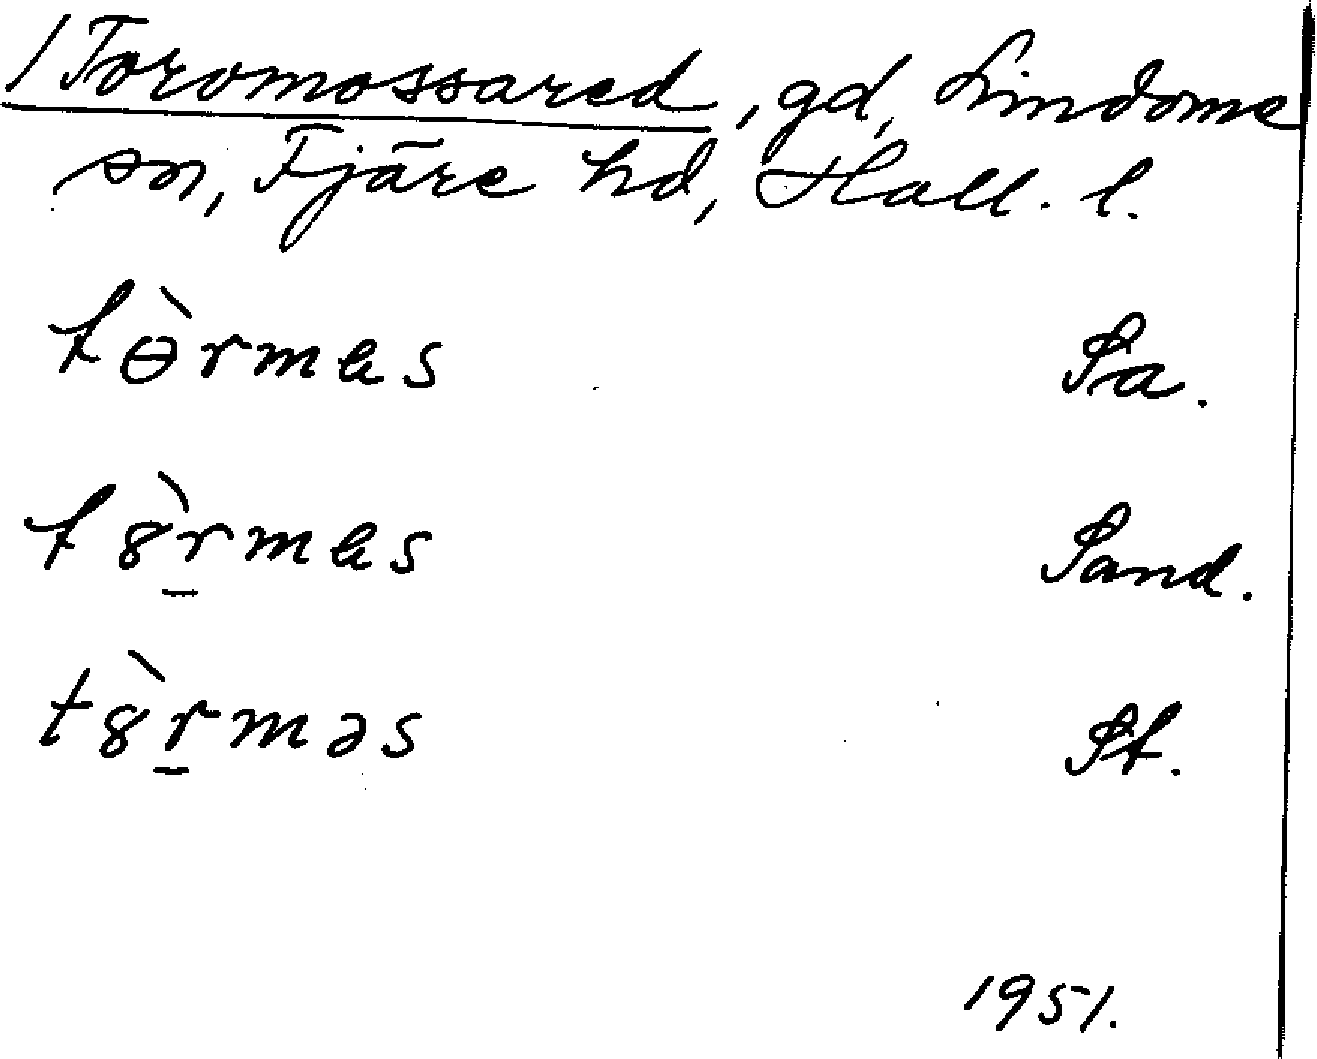 /Toromossared, gd, Lindome
sn, Fjäre hd, Hall. l.
tɵ̀rmas Sa.
t8̀r̲mas Sand.
t8̀r̲məs St.
1951.